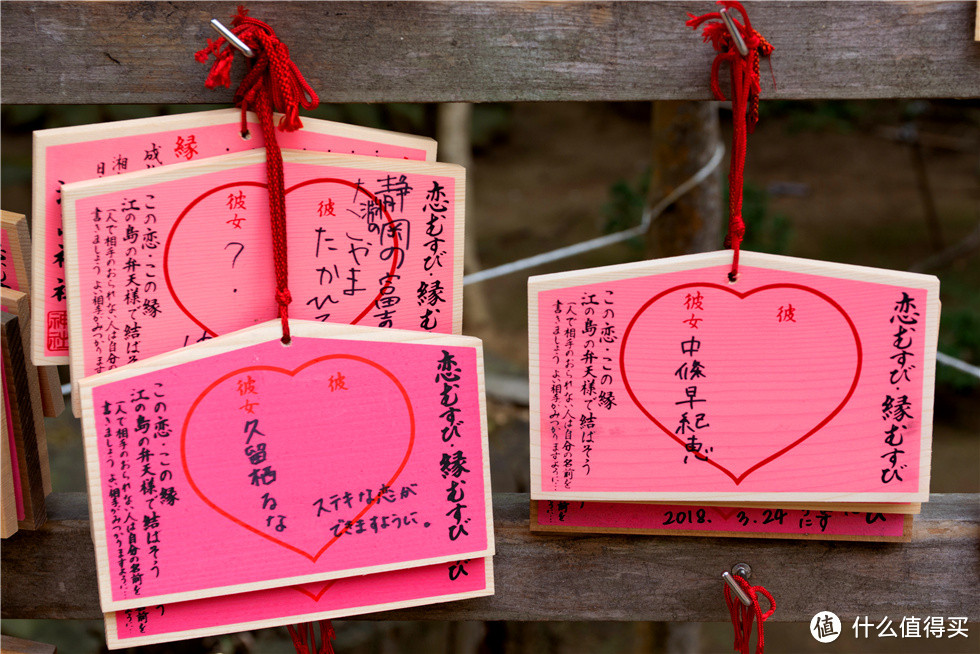 縁
神社
恋むすび・縁む
静岡の富
彼
彼女
たかひ
？
この恋・この縁
江の島の弁天様で結ばそ
一人で相手のおられない人は自分の
書きましょう よい相手がみつかります
恋むすび・縁むすび
彼
彼女
久留栖るな
ステキな恋が
できますように。
この恋・この縁
江の島の弁天様で結ばそう
一人で相手のおられない人は自分の名前を
書きましょう よい相手がみつかりますように…
恋むすび・縁むすび
彼
彼女
中條早紀恵
この恋・この縁
江の島の弁天様で結ばそう
一人で相手のおられない人は自分の名前を
書きましょう よい相手がみつかりますように…
2018. 3.24
值 什么值得买